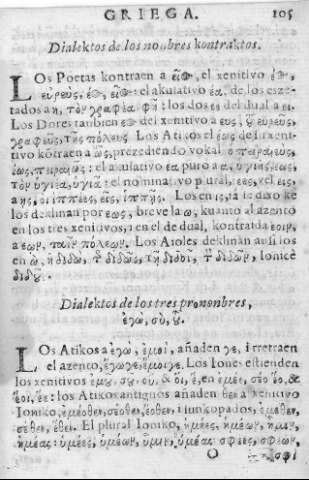 GRIEGA. 105
Dialektos de los nonbres kontraktos.
LOs Poetas kontraen a el xenitivo
: el akusativo έα, de los esze-
tados a η, τὸν γραφέα φῆ: los dos ει del dual a ει.
Los Dores tanbien del xenitivo a ευς;
γραφεῦς, τῆς πόλευς. Los Atikos el έως del xeni-
tivo kõtraen a ῶς, prezediendo vokal ὁ πειραιεὺς,
έως, πειραιῶς: el akusativo έα puro a ᾶ, ὑγιὴς, έως,
τὸν ὑγιέα, ὑγιᾶ: el nominativo plural, έες, εῖς, εις,
a ῆς, οἱ ἱππέες, εῖς, ἱππῆς. Los en ις,
los deklinan por εως, breve la ω, kuanto al azento
en los tres xenitivos, i en el de dual, kontraida εοιν,
a εων, ταῖν πόλεων. Los Aioles deklinan ausi los
en ὼ, ἡ διδὼ, διδῶς, τῇ διδοῖ, τ διδῶν, Ionice
διδοῦν.
Dialektos de los tres pronombres,
ἐγὼ, σὺ, οὗ.
LOs Atikos a ἐγὼ, ἐμοὶ, añaden γε, i retraen
el azento, ἔγωγε, ἔμοιγε. Los Iones estienden
los xenitivos ἐμοῦ, σοῦ, οὗ, & οἷ, ἓ, en ἐμέο, σέο ἕο, &
ἑοῖ, ἑέ: los Atikos antiguos añaden θεν a xenitivo
Ioniko, ἐμέοθεν, σέοθεν, ἕοθεν, i sunkopados, ἐμέθεν,
σέθεν, ἕθεν. El plural Ioniko, ἡμέες, ἡμέων, ἡμῖν,
ἡμέας: ὑμέες, ὑμέων, ὑμῖν, ὑμέας σφέες, σφέων,
O σφι